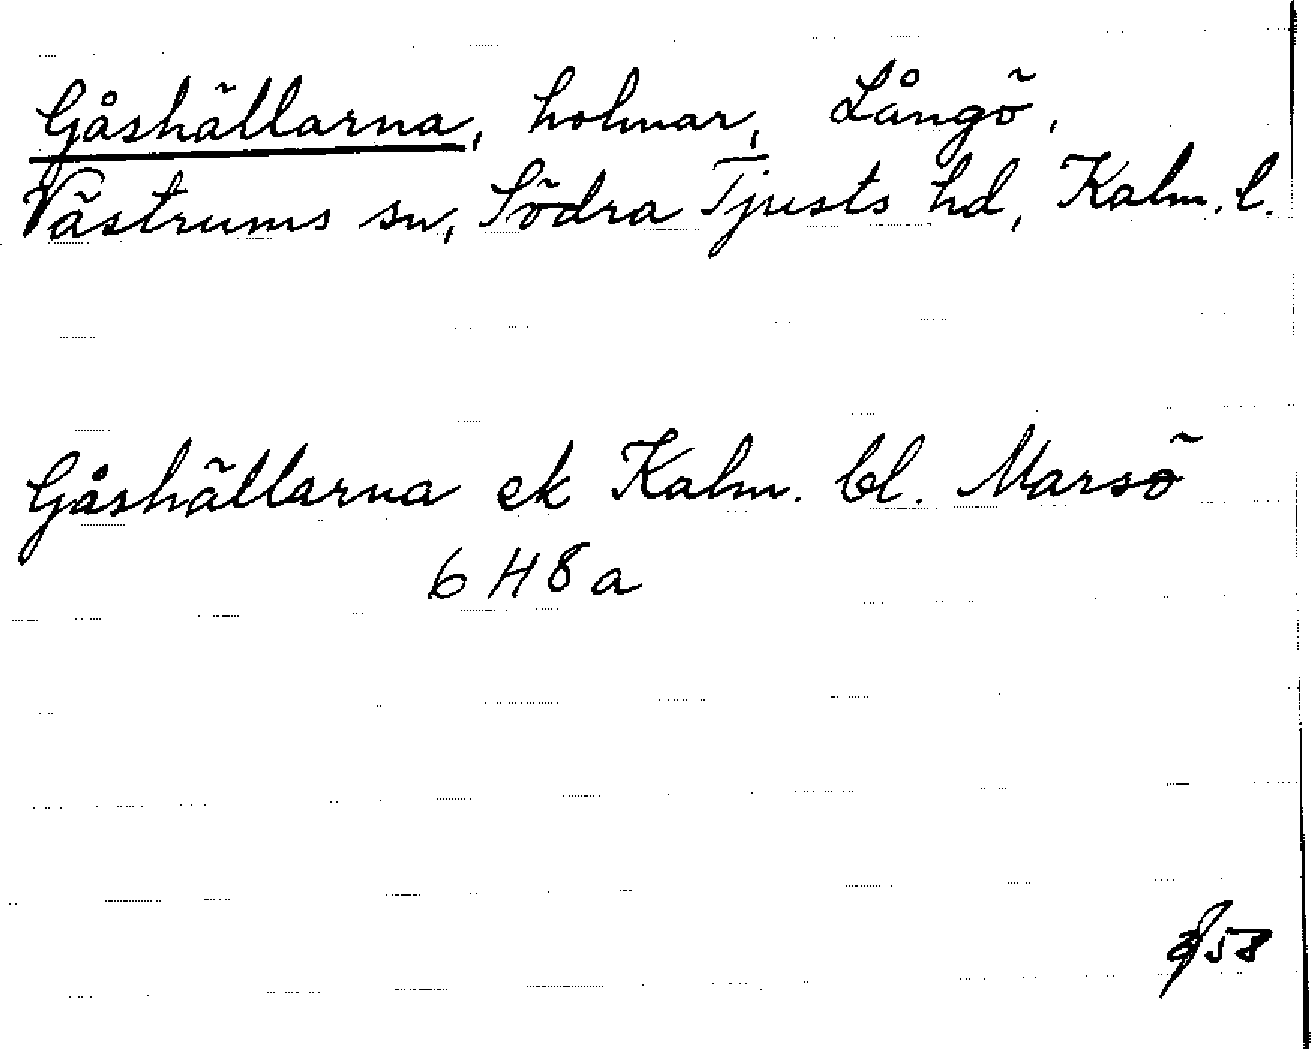 Gåshällarna, holmar, Långö,
Västrums sn, Södra Tjusts hd, Kalm. l.
Gåshällarna ek Kalm. bl. Marsö
6 H 8 a
58